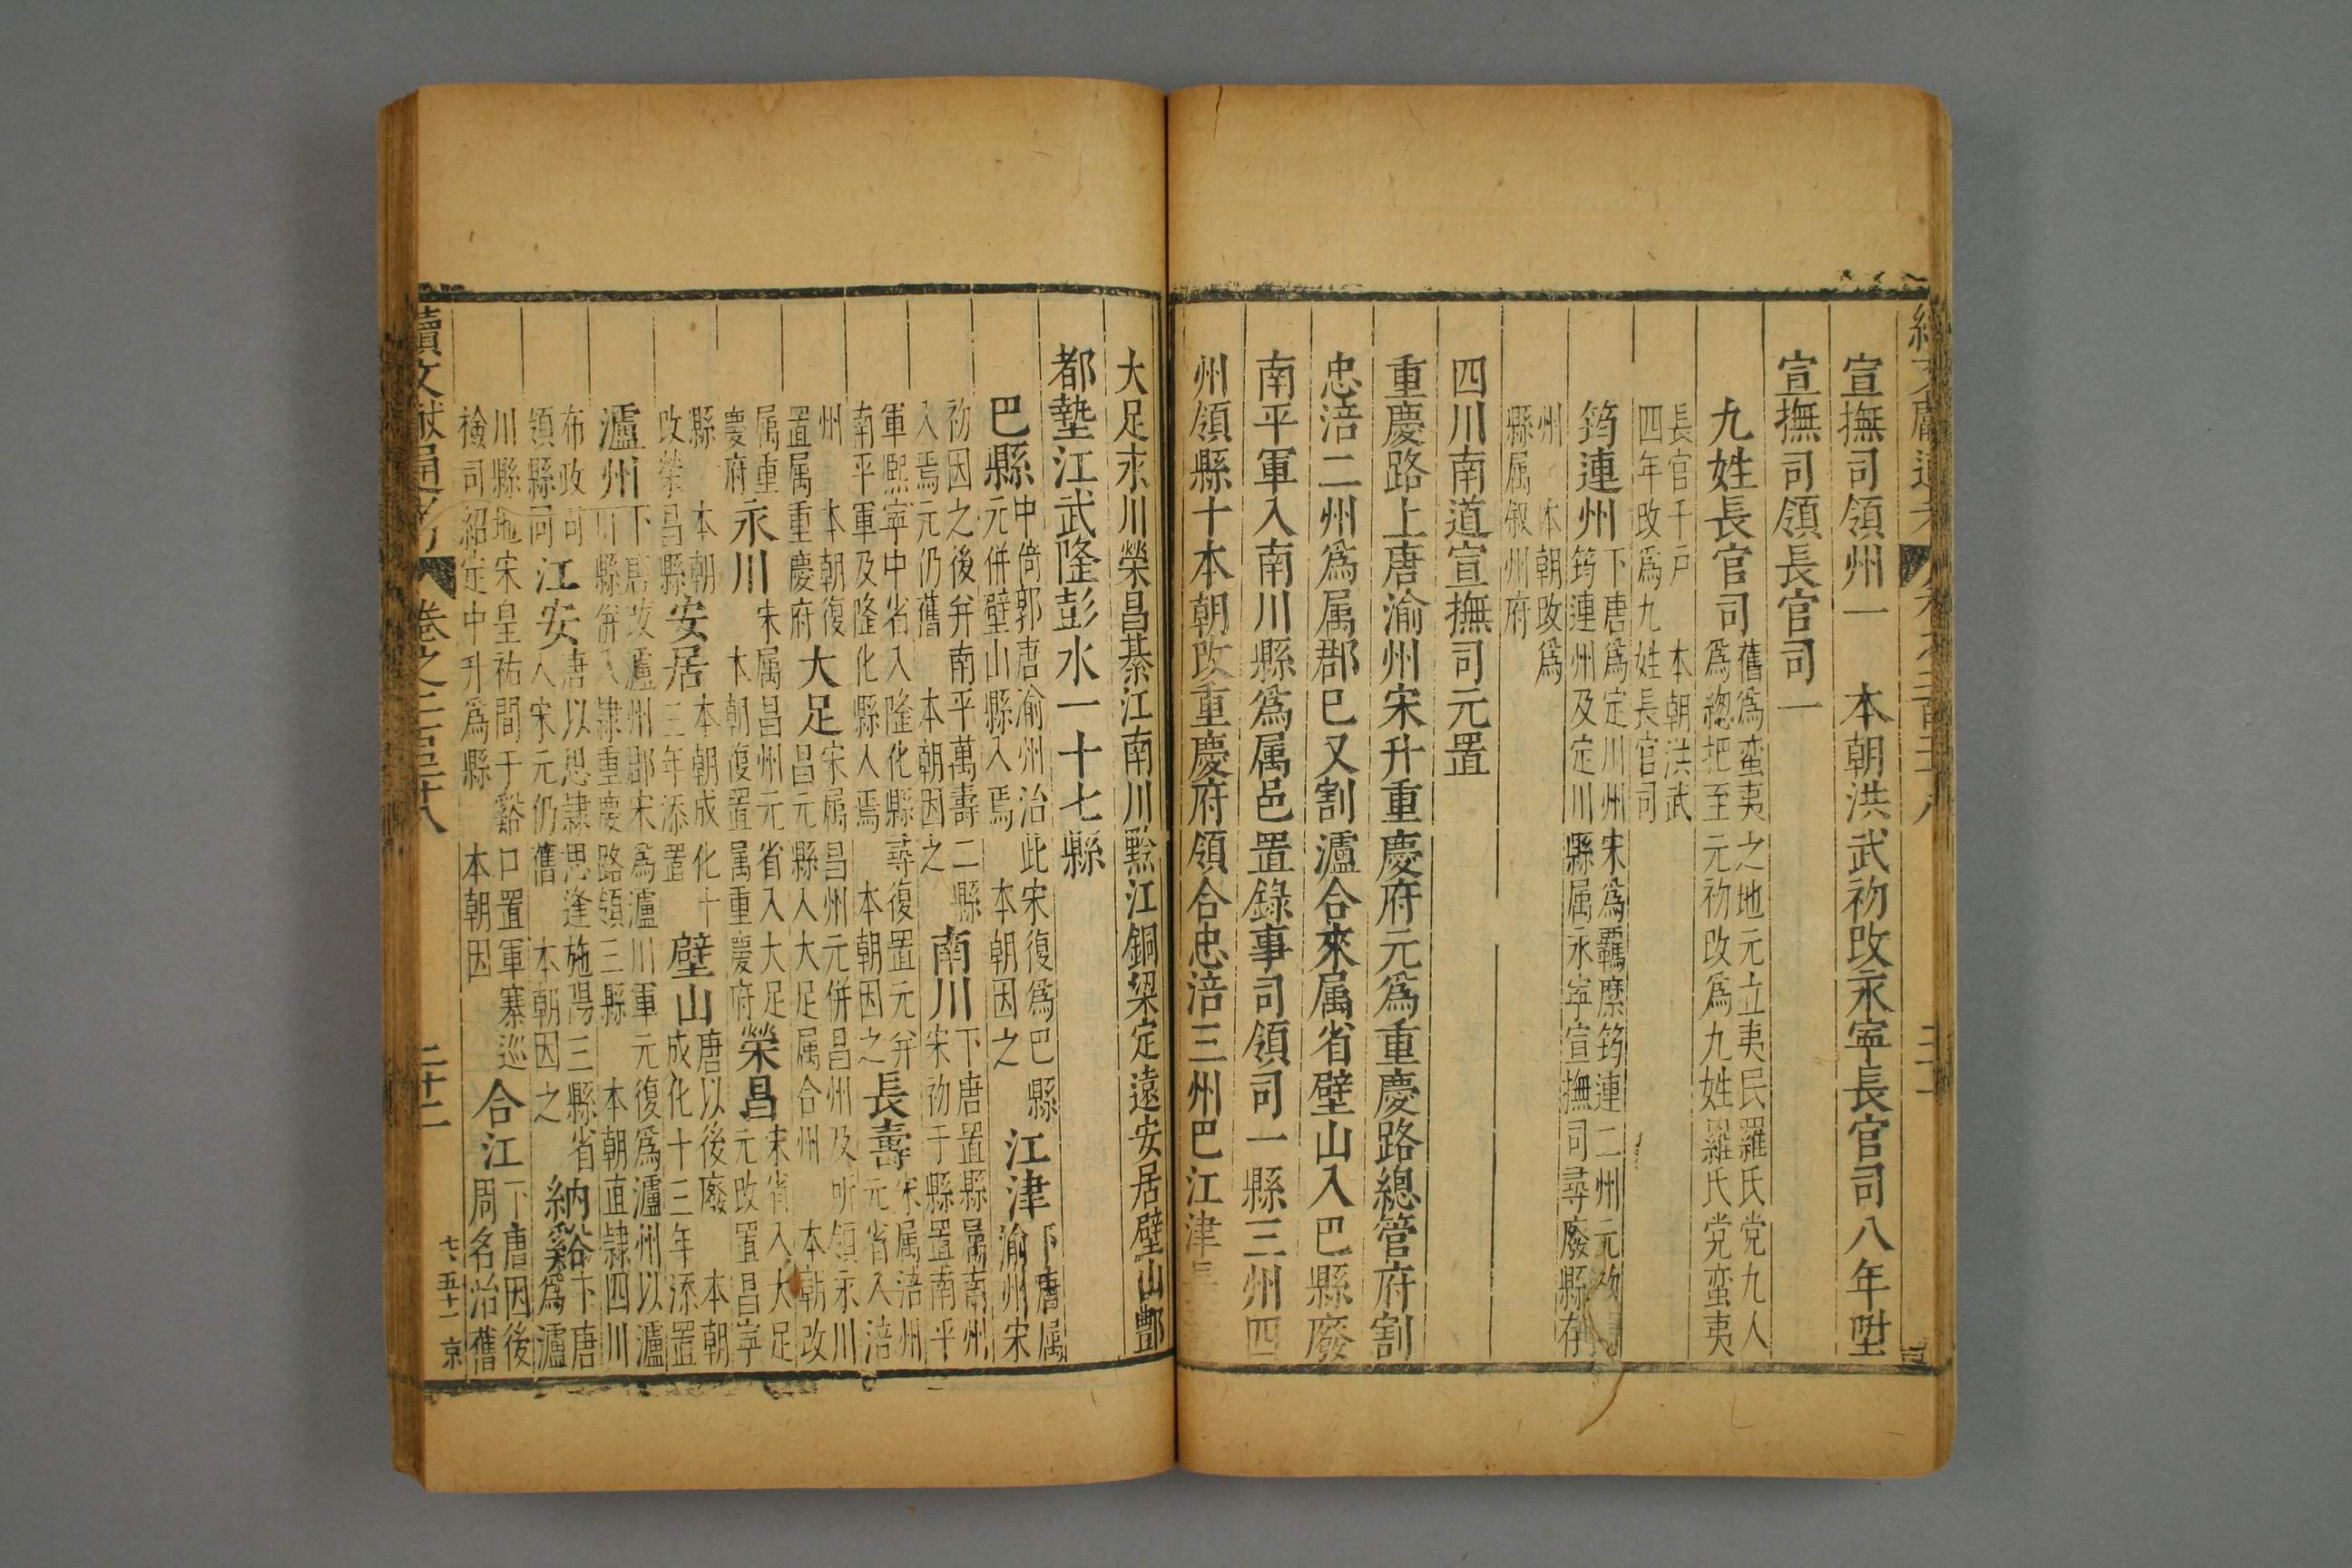 宣撫司領州一　本朝洪武初改永寧長官司八年陞
宣撫司領長官司一
九姓長官司
舊爲蛮夷之地元立夷民羅氏党九人
爲總把至元初改爲九姓羅氏党蛮夷
長官千戶　本朝洪武
四年改爲九姓長官司
筠連州
下唐爲定川州宋爲羈縻筠連二州元改
筠連州及定川縣属永寧宣撫司尋廢縣存
州　本朝改爲
縣属叙州府
四川南道宣撫司元置
重慶路上唐渝州宋升重慶府元爲重慶路總管府割
忠涪二州爲属郡巳又割瀘合來属省壁山入巴縣廢
南平軍入南川縣爲属邑置錄事司領司一縣三州四
州領縣十本朝改重慶府領合忠涪三州巴江津長
大足永川榮昌綦江南川黔江銅梁定遠安居壁山酆
都墊江武隆彭水一十七縣
巴縣
中倚郭唐渝州治此宋復爲巴縣
元併壁山縣入焉　本朝因之
江津
下唐属
渝州宋
初因之後弁南平萬壽二縣
入焉元仍舊　本朝因之
南川
下唐置縣属南州
宋初于縣置南平
軍熙寧中省入隆化縣尋復置元弁
南平軍及隆化縣入焉　本朝因之
長壽
宋属涪州
元省入涪
州　本朝復
置属重慶府
大足
宋属昌州元併昌州及所領永川
昌元縣入大足属合州　本朝改
属重
慶府
永川
宋属昌州元省入大足
本朝復置属重慶府
榮昌
宋省入大足
元改置昌寧
縣　本朝
改榮昌縣
安居
本朝成化十
三年添置
壁山
唐以後廢　本朝
成化十三年添置
瀘州
下唐改瀘州郡宋爲瀘川軍元復爲瀘州以瀘
川縣倂入隷重慶路領三縣　本朝直隷四川
布政司
領縣同
江安
唐以思隷思逢施陽三縣省
入宋元仍舊　本朝因之
納谿
下唐
爲瀘
川縣地宋皇祐間于谿口置軍寨巡
檢司紹定中升爲縣　本朝因
合江
下唐因後
周名治舊
續文献通考　卷之二百二十八　二十二
七、五十一　京